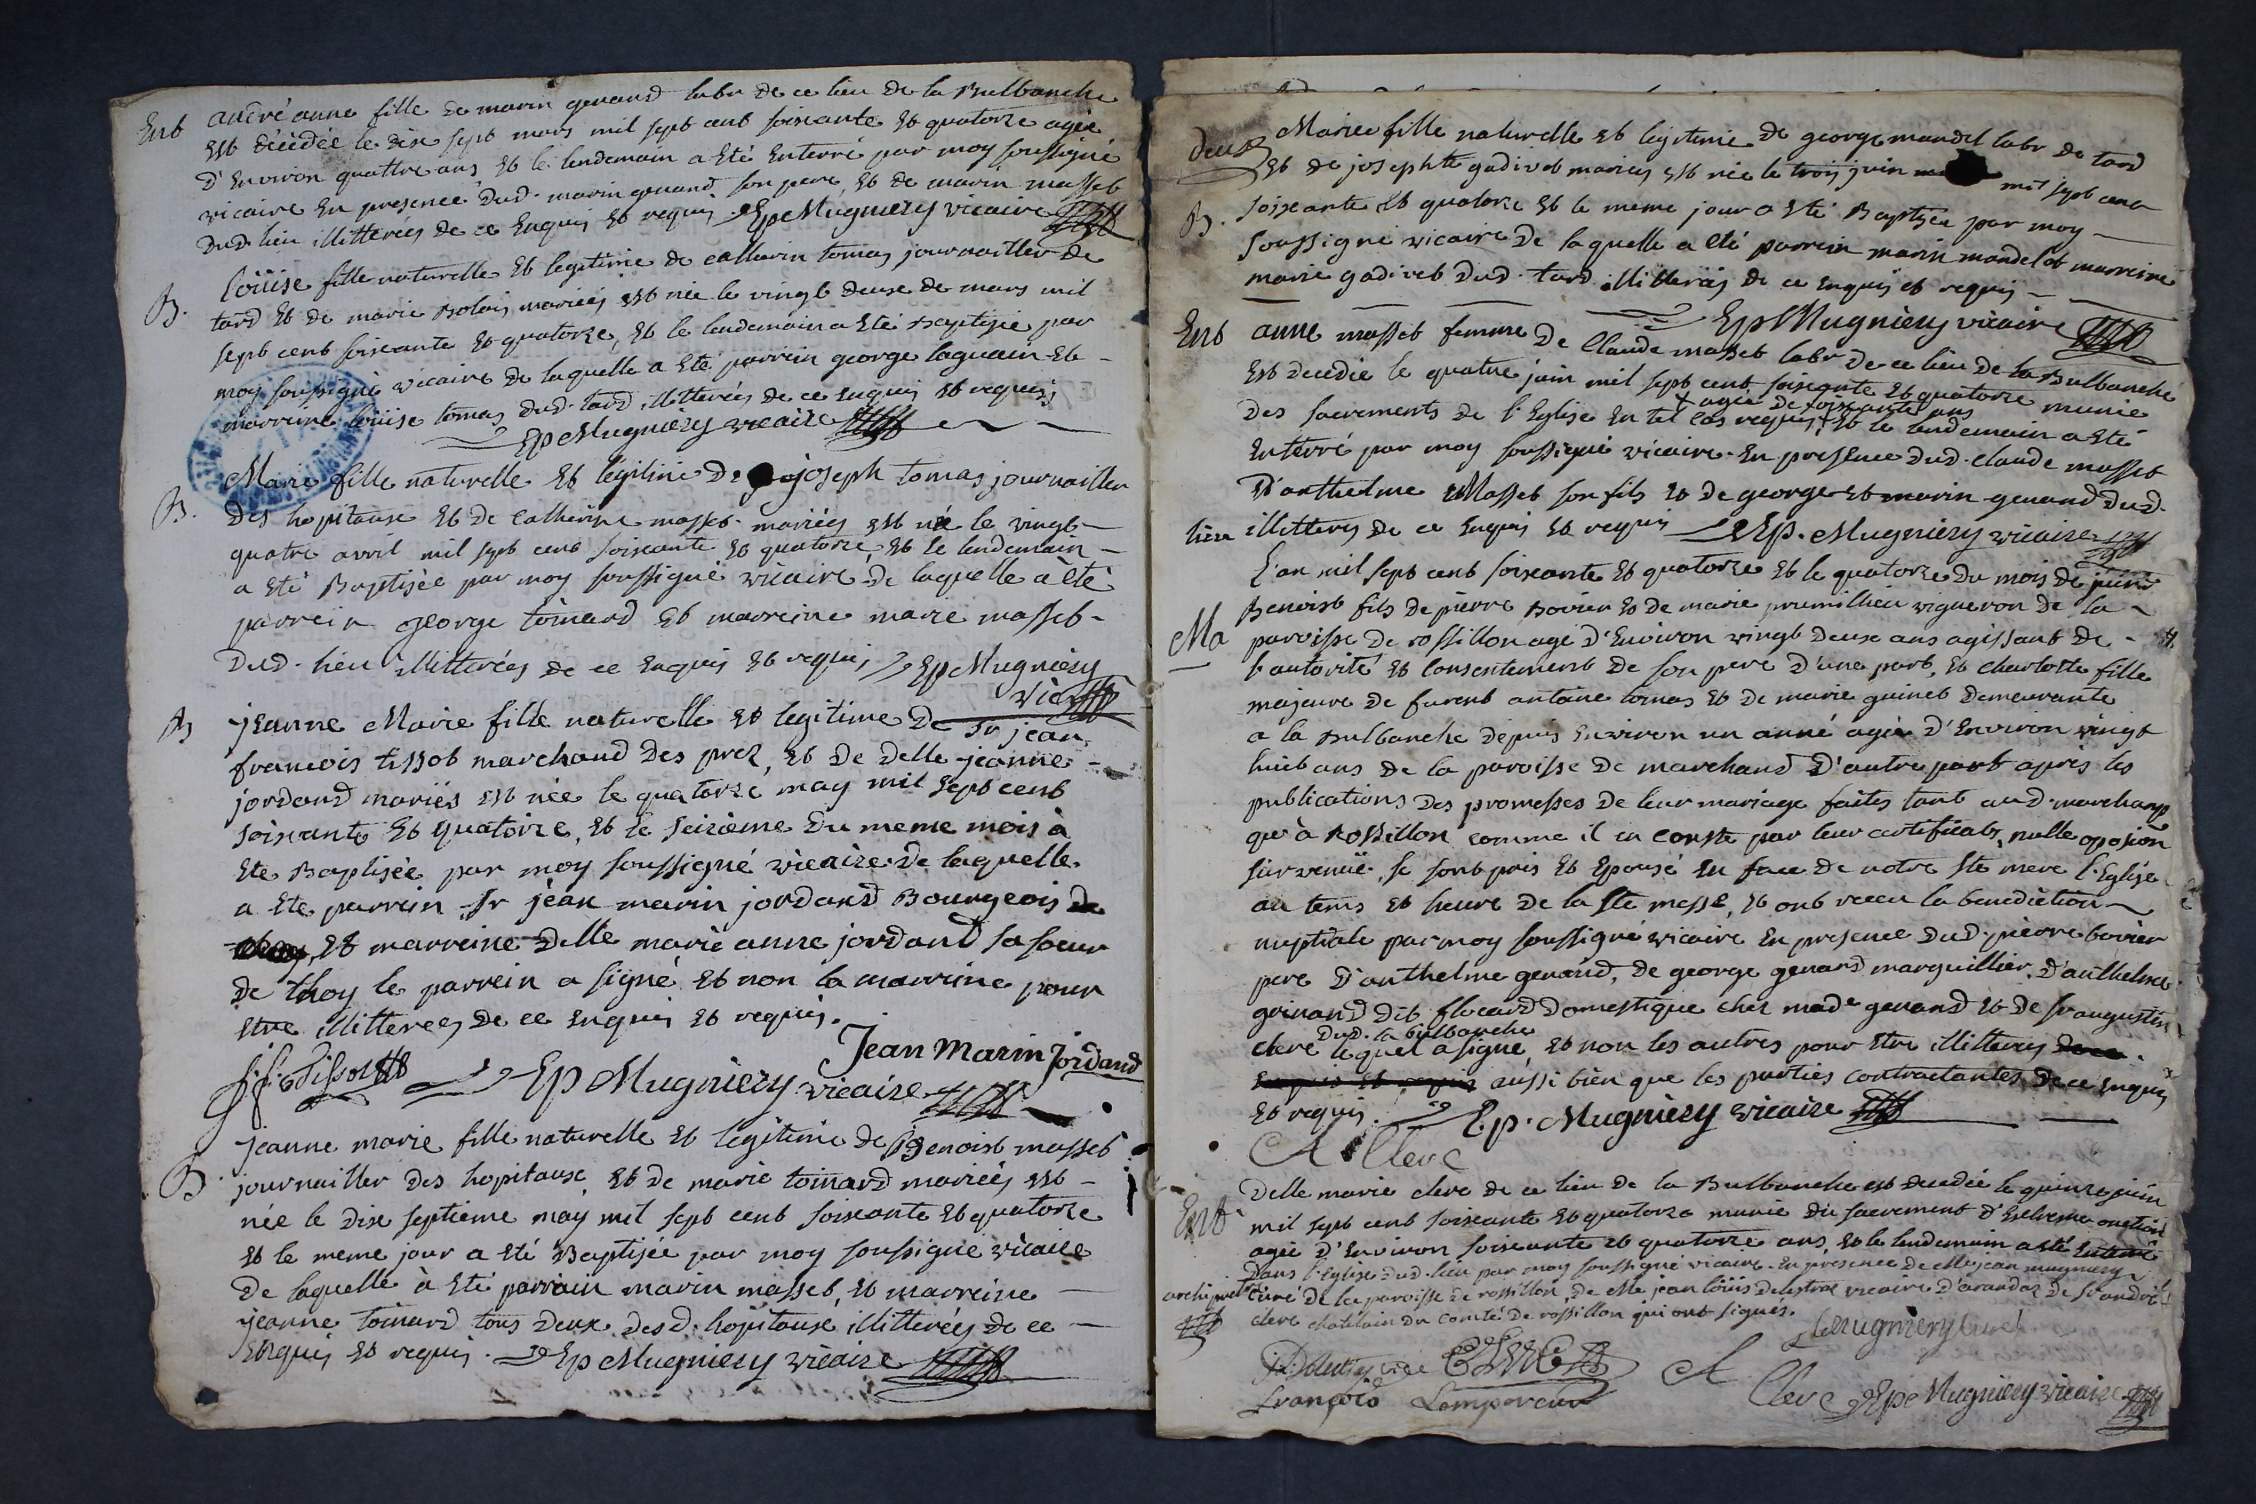 Ent andré anne fille de marin genand labr de ce lieu de la Bulbanche
est décédée le dix sept mars mil sept cent soixante et quatorze agée
d'Environ quattre ans, et le lendemain a Eté Enterré par moy soussigné
vicaire En presence dud. marin genand son pere, et de marin masset
dud. lieu illitterés de ce Enquis et requis Ep Mugniery vicaire
B. Loüise fille naturelle et legitime de catherin tomas journaillier de
tard et de marie bolais mariés est née le vingt deux de mars mil
sept cent soixante et quatorze, et le lendemain a Eté baptisée par
moy soussigné vicaire de laquelle a Eté parrein george laguain et
marreine loüise tomas dud. tard illitterés de ce enquis et requis
Ep Mugniery vicaire
B. Marie fille naturelle et legitime de joseph tomas journaillier
des hopitaux et de Catherine masset mariés est née le vingt
quatre avril mil sept cent soixante et quatorze, et le lendemain
a Eté Baptisée par moy soussigné vicaire de laquelle a été
parrein george toinard et marreine marie masset
dud. lieu illitterés de ce enquis et requis Ep Mugniery
vic
B jeanne Marie fille naturelle et legitime de Sr jean
francois tissot marchand des prez, et de Delle jeanne
jordand mariés est née le quatorze may mil sept cent
soixante et quatorze, et le seizieme du meme mois à
Ete Baptisée par moy soussigné vicaire de laquelle
a Ete parrein Sr jean marin jordand Bourgeois
et marreine Delle marie anne jordand sa soeur
de thoy le parrein a signé et non la marreine pour
etre illitterees de ce enquis et requis.
Jean Marin Jordand
j. f. Tissot Ep Mugniery vicaire
B jeanne marie fille naturelle et legitime de Benoist masset
journaillier des hopitaux, et de marie toinard mariés est
née le dix septieme may mil sept cent soixante et quatorze
et le meme jour a eté Baptisée par moy soussigné vicaire
de laquelle à Eté parrain marin masset, et marreine
jeanne toinard tous deux desd. hopitaux illitterés de ce
Enquis et requis. Ep Mugniery vicaire
deux Marie fille naturelle et legitime de george mandel labr de tard
et de josephte gadivet mariés est née le trois juin mil sept cent
B. soixante et quatorze et le meme jour a Eté Baptisée par moy
soussigné vicaire de laquelle a été parrein marin mandel et marreine
marie gadivet dud. tard illitterés de ce enquis et requis
Ep Mugniery vicaire
Ent anne masset femme de Claude masset labr de ce lieu de la Bulbanche
est decedée le quatre juin mil sept cent soixante et quatorze munie
+ agée de soixante ans
des sacrements de l'Eglise en tel cas requis, + et le lendemain a été
Enterré par moy soussigné vicaire En presence dud. claude masset
d'anthelme Masset son fils et de george et marin genand dud.
lieu illitterés de ce enquis et requis Ep. Mugniery vicaire
L'an mil sept cent soixante et quatorze et le quatorze du mois de juin
Benoist fils de pierre bovier et de marie prumillieu vigneron de la
Ma paroisse de rossillon agé d'Environ vingt deux ans agissant de
l'autorité et consentement de son pere d'une part, et charlotte fille
majeure de furent antoine tomas et de marie guinet demeurante
a la Bulbanche depuis environ un anné agée d'Environ vingt
huit ans de la paroisse de marchand d'autre part après les
publications des promesses de leur mariage faites tant aud. marchand
qu'à Rossillon comme il en conste par leur certificats, nulle oposion
survenüe, se sont pris et Epousé en face de notre Ste mere l'Eglise
au tems et heure de la Ste messe, et ont receu la benediction
nuptiale par moy soussigné vicaire En presence dud. pierre bovier
pere d'anthelme genand, de george genand marguillier, d'anthelme
goinand dit flocard domestique chez made genand et de Sr augustin
dud. la bulbanche
clerc lequel a signé, et non les autres pour etre illitterés de ce
enquis et requis aussi bien que les parties contractantes de ce enquis
et requis. E. p. Mugniery vicaire
A Clerc
Ent Delle marie clerc de ce lieu de la Bulbanche est decedée le quinze juin
mil sept cent soixante et quatorze munie du sacrement d'Extreme onction
agée d'Environ soixante et quatorze ans, et le lendemain a été Enterré
dans l'Eglise dud. lieu par moy soussigné vicaire En presence de Me jean mugniery
archipretre curé de la paroisse de rossillon, de Me jean loüis delestra vicaire d'arandas de Sr andré
clerc chatelain du comté de rossillon qui ont signés.
Mugniery Curé
Clerc A Clerc Ep Mugniery vicaire
François Lempereur